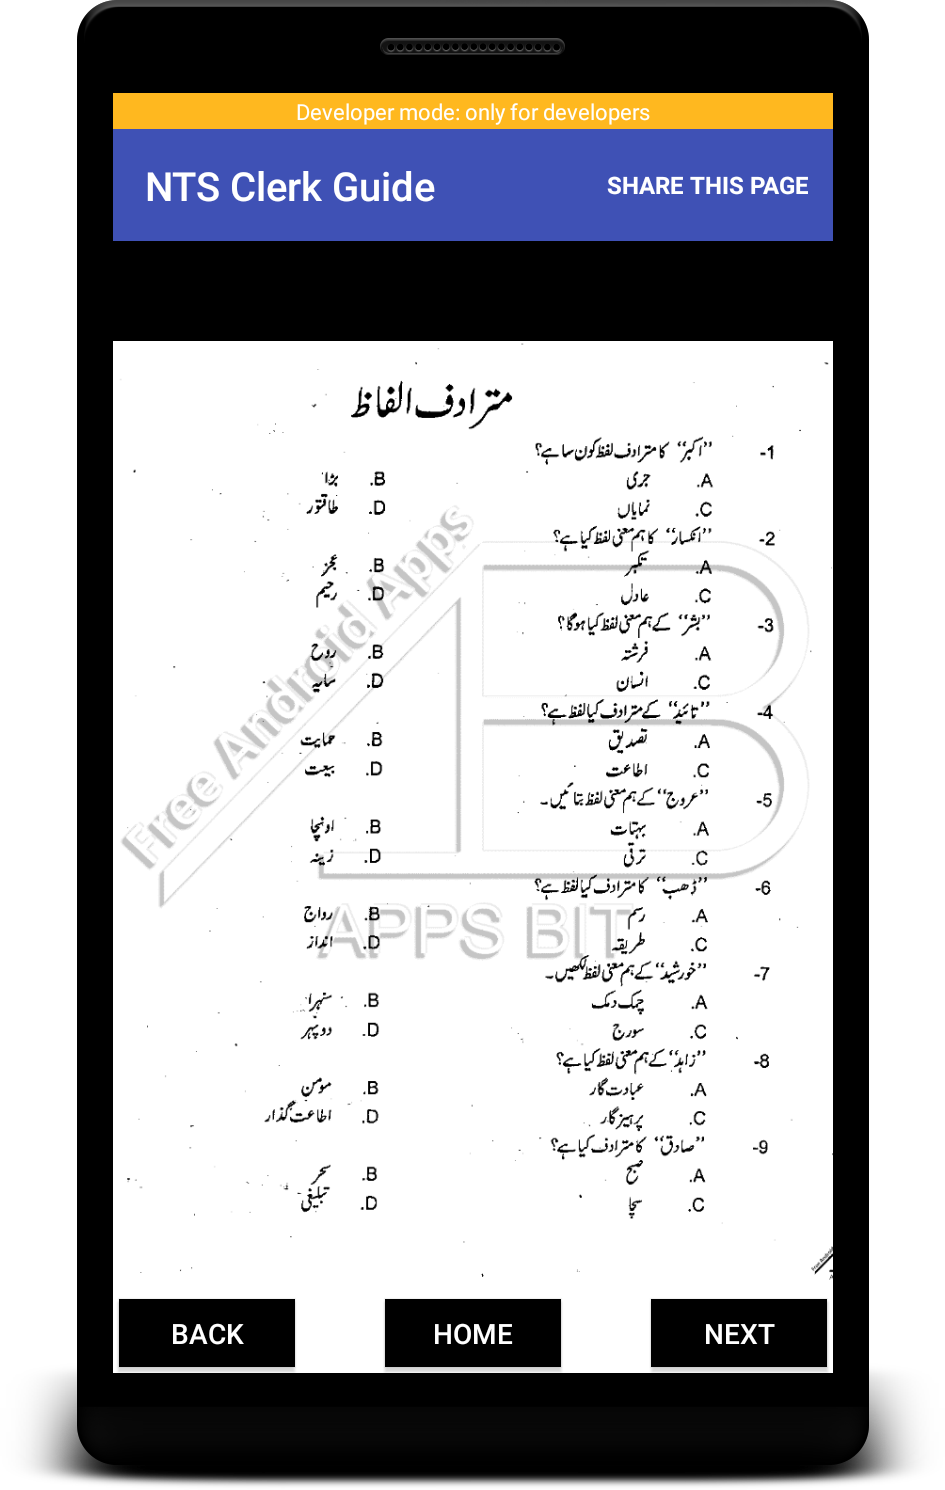 Developer mode: only for developers
NTS Clerk Guide SHARE THIS PAGE
مترادف الفاظ
1- ”اکبر“ کا مترادف لفظ کون سا ہے؟
A. جری B. بڑا
C. نمایاں D. طاقتور
2- ”انکسار“ کا ہم معنی لفظ کیا ہے؟
A. تکبر B. عجز
C. عادل D. رحیم
3- ”بشر“ کے ہم معنی لفظ کیا ہوگا؟
A. فرشتہ B. روح
C. انسان D. سایہ
4- ”تائید“ کے مترادف کیا لفظ ہے؟
A. تصدیق B. حمایت
C. اطاعت D. بیعت
5- ”عروج“ کے ہم معنی لفظ بتائیں۔
A. بہتات B. اونچا
C. ترقی D. زینہ
6- ”ڈھب“ کا مترادف کیا لفظ ہے؟
A. رسم B. رواج
C. طریقہ D. انداز
7- ”خورشید“ کے ہم معنی لفظ لکھیں۔
A. چمک دمک B. سنہرا
C. سورج D. دوپہر
8- ”زاہد“ کے ہم معنی لفظ کیا ہے؟
A. عبادت گار B. مومن
C. پرہیز گار D. اطاعت گذار
9- ”صادق“ کا مترادف کیا ہے؟
A. صبح B. سحر
C. سچا D. تبلیغی
Free Android Apps
AB
APPS BIT
BACK HOME NEXT